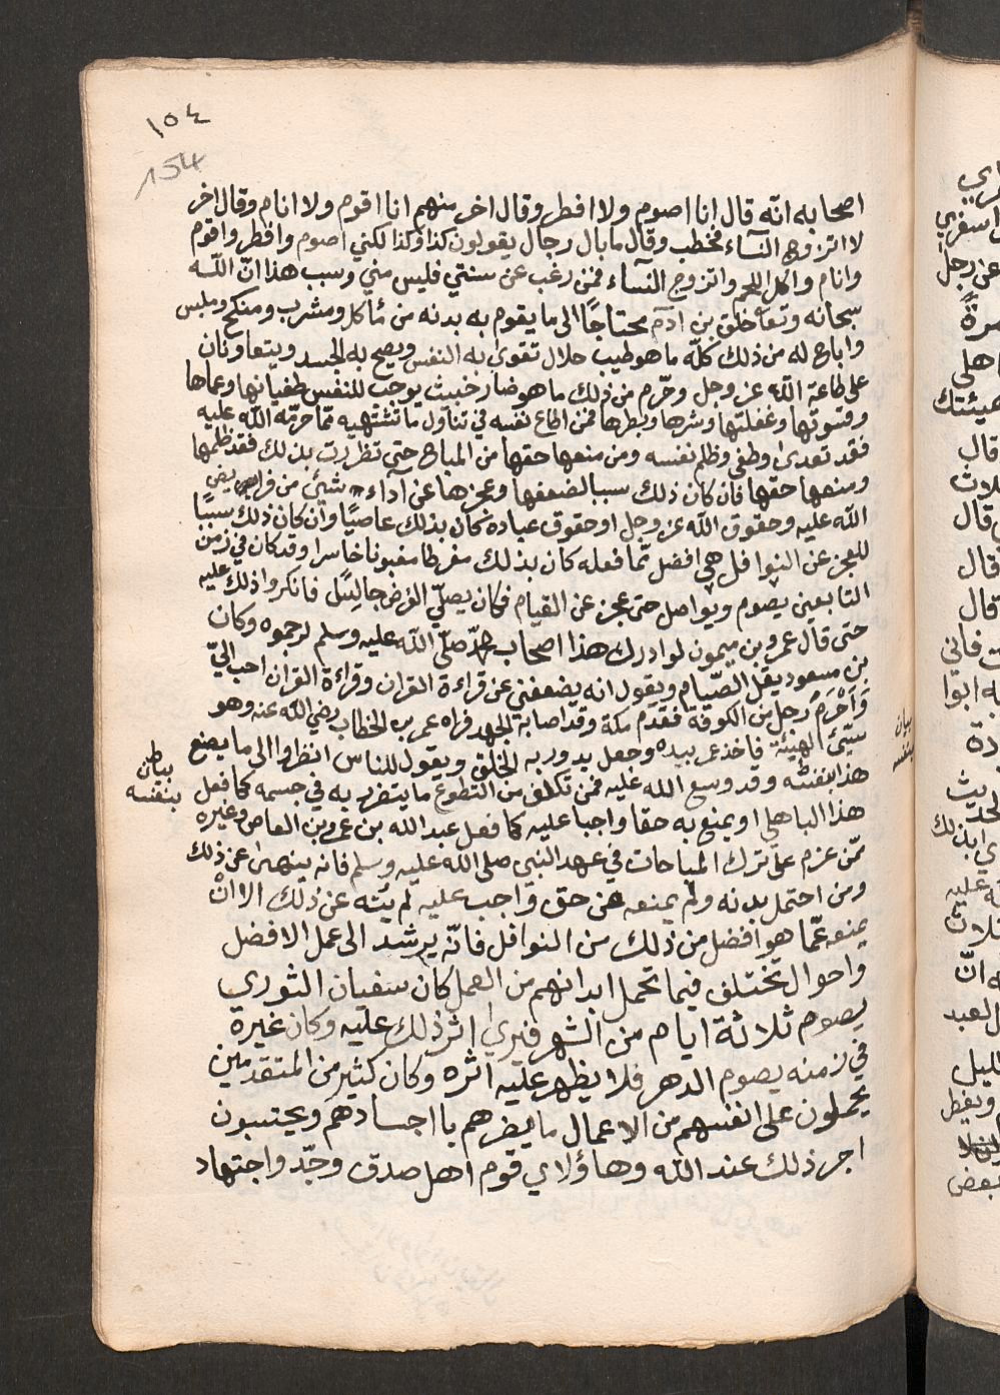 ١٥٤
154
اصحابه انّه قال انا اصوم ولا افطر وقال اخر منهم انا اقوم ولا انام وقال اخر
لا اتزوج النسآء فخطب وقال ما بال رجال يقولون كذا وكذا لكني اصوم وافطر واقوم
وانام واكل اللحم واتزوج النسآء فمن رغب عن سنتي فليس مني وسبب هذا انّ اللّه
سبحانه وتعا خلق بن ادم محتاجًا الى ما يقوم به بدنه من مأكل ومشرب ومنكح وملبس
واباح له من ذلك كلّه ما هو طيب حلال تقوى به النفس ويصح به الجسد ويتعاونان
على طاعة اللّه عز وجل وحّرم من ذلك ما هو ضار خبيث يوجب للنفس طغيانها وعماها
وقسوتها وغفلتها وشرها وبطرها فمن اطاع نفسه في تناول ما تشتهيه ممّا حرّمه اللّه عليه
فقد تعدى وطغى وظلم نفسه ومن منعها حقها من المباح حتى تظررت بذلك فقد ظلمها
ومنعها حقها فان كان ذلك سببا لضعفها وعجزها عن آداء شيئ من فرايض
اللّه عليه وحقوق اللّه عز وجل او حقوق عباده كان بذلك عاصيًا وان كان ذلك سببًا
للعجز عن النوافل هي افضل ممّا فعله كان بذلك مفرطا مغبونا خاسرا وقد كان في زمن
التابعين يصوم ويواصل حتى عجز عن القيام فكان يصلّي الفرض جالسًا فانكروا ذلك عليه
حتى قال عمرو بن ميمون لو ادرك هذا اصحاب محمّد صلّى اللّه عليه وسلم لرجموه وكان
بن مسعود يقل الصّيام ويقول انه يضعفني عن قراءة القران وقراءة القران احب اليّ
وَاَحْرَمَ رجل من الكوفة فقدم مكة وقد اصابه الجهد فراه عمر بن الخطاب رضي اللّه عنه وهو
سيّئ الهيئة فاخذ عمر بيده وجعل يدور به الخلق ويقول للناس انظروا الى ما يصنع
هذا بنفسه وقد وسع الله عليه فمن تكلف من التطوع ما يتضرر به في جسمه كما فعل
بيان
بنفسه
هذا الباهلي او يمنع به حقا واجبا عليه كما فعل عبد الله بن عمرو بن العاص وغيره
ممّن عزم على ترك المباحات في عهد النبي صلى الله عليه وسلم فانه ينهى عن ذلك
ومن احتمل بدنه ولم يمنعه من حق واجب عليه لم ينه عن ذلك الا انْ
يمنعه عمّا هو افضل من ذلك من النوافل فانّه يرشد الى عمل الافضل
واحوال تختلف فيما تحمل ابدانهم من العمل كان سفيان الثوري
يصوم ثلاثة ايام من الشهر فيرى اثر ذلك عليه وكان غيره
في زمنه يصوم الدهر فلا يظهر عليه اثره وكان كثير من المتقدمين
يحملون على انفسهم من الاعمال ما يضرهم با اجسادهم ويحتسبون
اجر ذلك عند اللّه وهاؤلاي قوم اهل صدق وجدّ واجتهاد